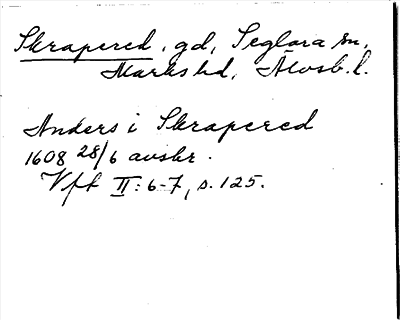 Skrapered, gd, Seglora sn,
Marks hd, Älvsb. l.
Anders i Skrapered
1608 28/6 avskr.
Vft II: 6-7, s. 125.